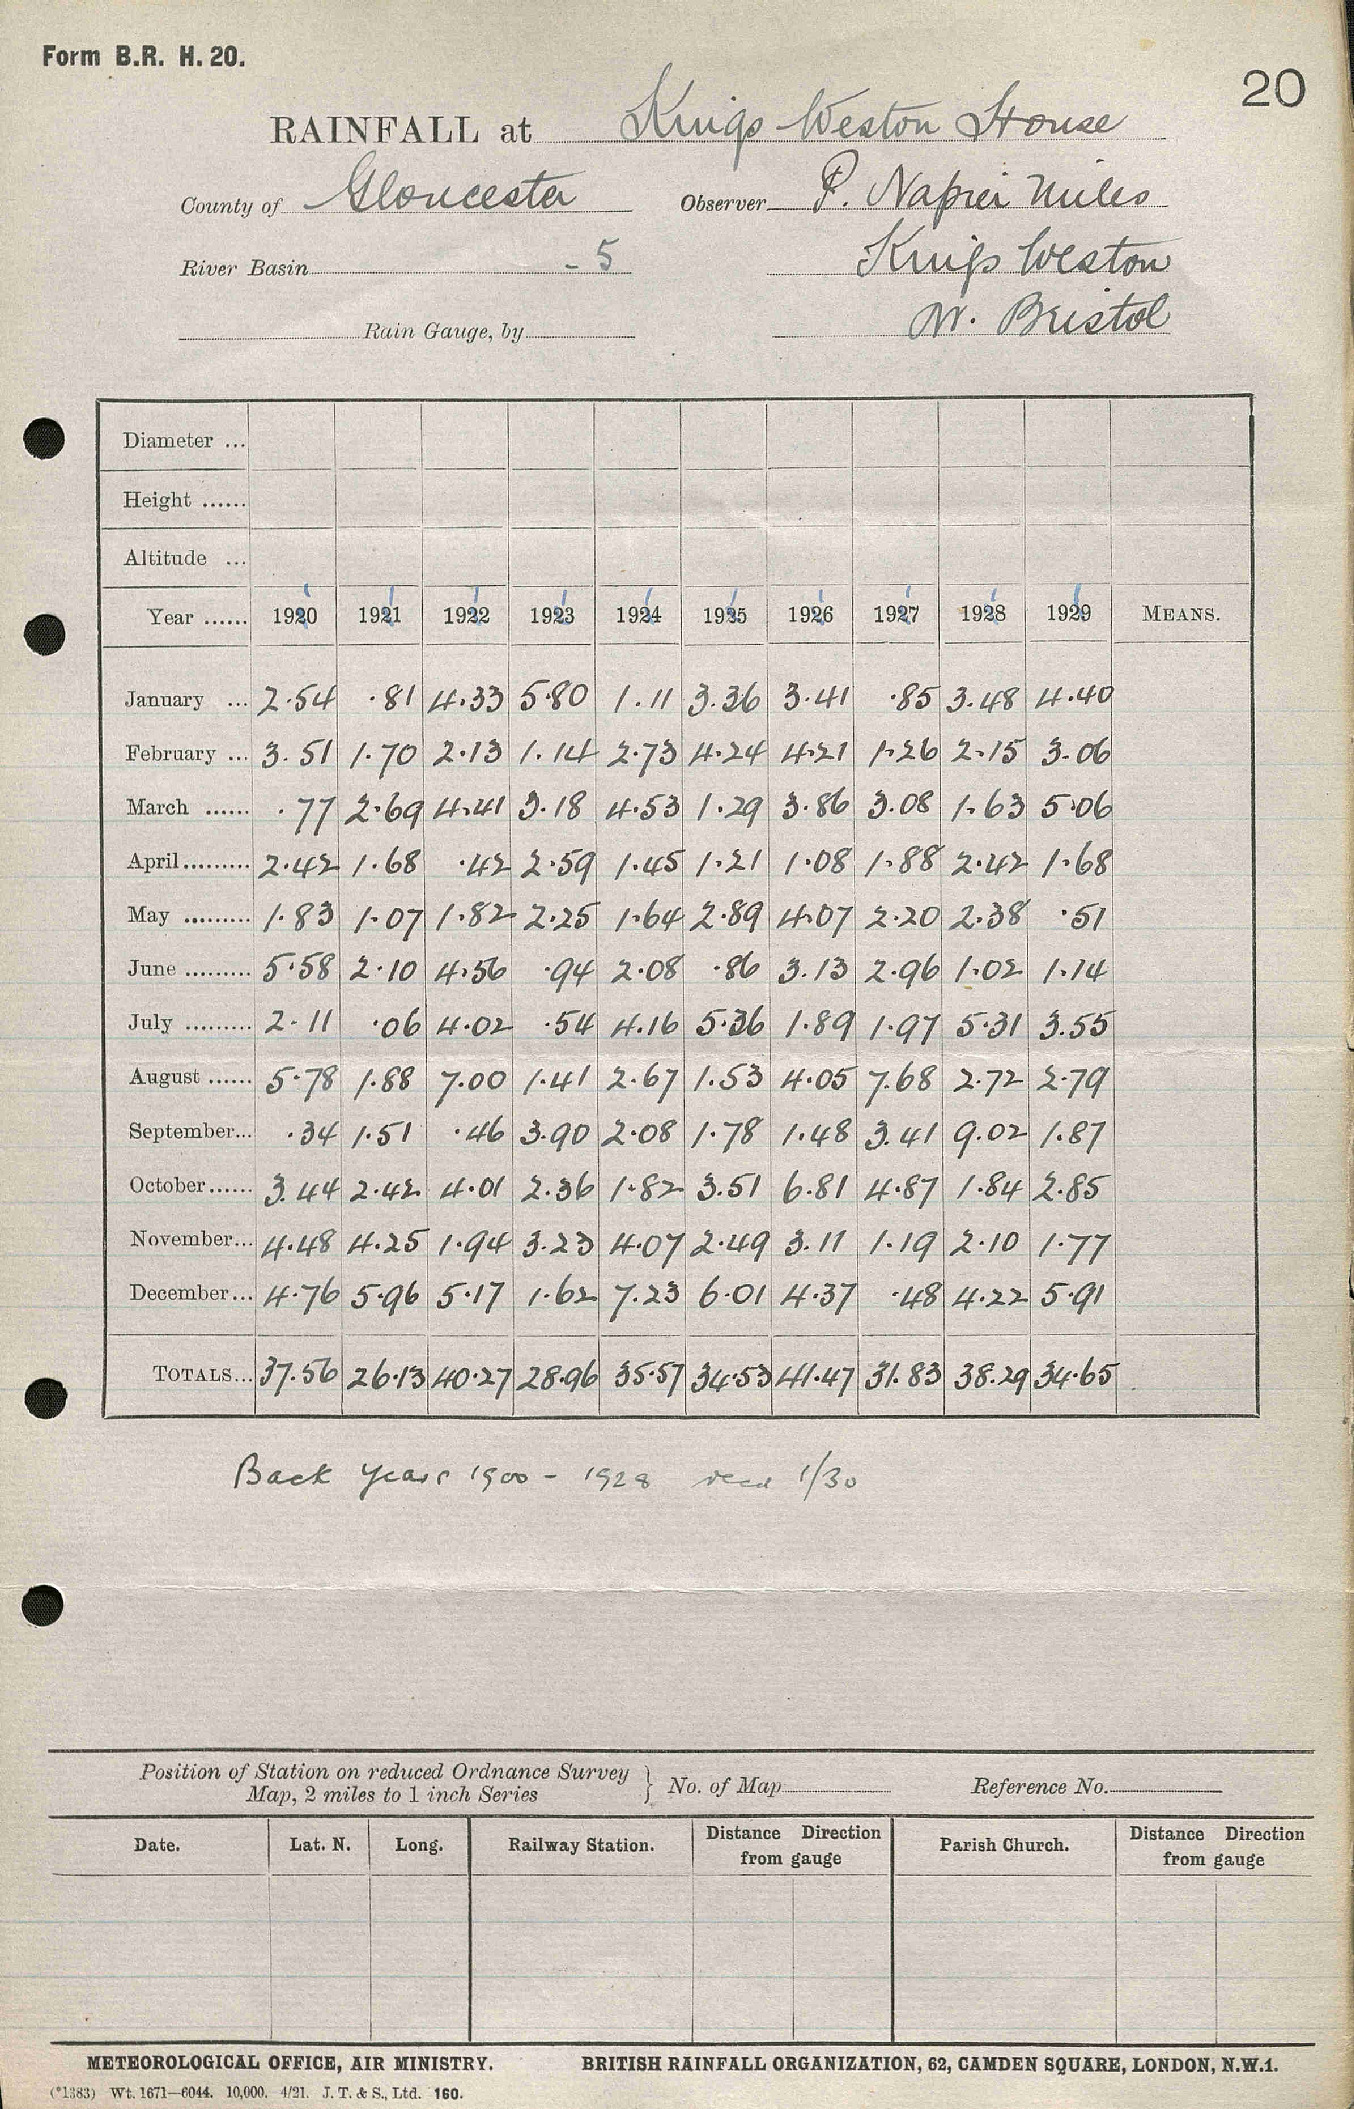 Form B.R. H. 20.
20
RAINFALL at Kings Weston House
County of Gloucester Observer P. Napier Miles
River Basin - 5 Kings Weston
Rain Gauge, by W. Bristol
Diameter ...
Height ......
Altitude ...
Year ...... 1920 1921 1922 1923 1924 1925 1926 1927 1928 1929 MEANS.
January ... 2.54 .81 4.33 5.80 1.11 3.36 3.41 .85 3.48 4.40
February ... 3.51 1.70 2.13 1.14 2.73 4.24 4.21 1.26 2.15 3.06
March ...... .77 2.69 4.41 3.18 4.53 1.29 3.86 3.08 1.63 5.06
April ......... 2.42 1.68 .42 2.59 1.45 1.21 1.08 1.88 2.42 1.68
May ......... 1.83 1.07 1.82 2.25 1.64 2.89 4.07 2.20 2.38 .51
June ......... 5.58 2.10 4.56 .94 2.08 .86 3.13 2.96 1.02 1.14
July ......... 2.11 .06 4.02 .54 4.16 5.36 1.89 1.97 5.31 3.55
August ...... 5.78 1.88 7.00 1.41 2.67 1.53 4.05 7.68 2.72 2.79
September... .34 1.51 .46 3.90 2.08 1.78 1.48 3.41 9.02 1.87
October...... 3.44 2.42 4.01 2.36 1.82 3.51 6.81 4.87 1.84 2.85
November... 4.48 4.25 1.94 3.23 4.07 2.49 3.11 1.19 2.10 1.77
December... 4.76 5.96 5.17 1.62 7.23 6.01 4.37 .48 4.22 5.91
TOTALS... 37.56 26.13 40.27 28.96 35.57 34.53 41.47 31.83 38.29 34.65
Back years 1900 - 1928 recd 1/30
Position of Station on reduced Ordnance Survey
Map, 2 miles to 1 inch Series } No. of Map Reference No.
Date. Lat. N. Long. Railway Station. Distance Direction from gauge Parish Church. Distance Direction from gauge
METEOROLOGICAL OFFICE, AIR MINISTRY. BRITISH RAINFALL ORGANIZATION, 62, CAMDEN SQUARE, LONDON, N.W.1.
(*1383) Wt. 1671—6044. 10,000. 4/21. J. T. & S., Ltd. 160.